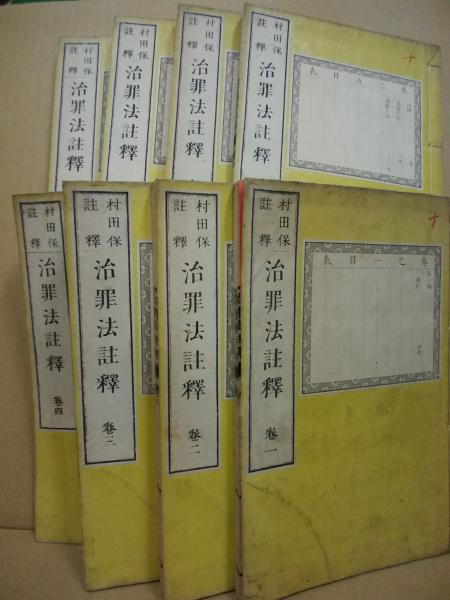 村田保
註釋
治罪法註釋
村田保
註釋
治罪法註釋
村田保
註釋
治罪法註釋
村田保
註釋
治罪法註釋
卷之五目次
十
村田保
註釋
治罪法註釋
卷四
村田保
註釋
治罪法註釋
卷三
村田保
註釋
治罪法註釋
卷二
村田保
註釋
治罪法註釋
卷一
卷之一目次
十